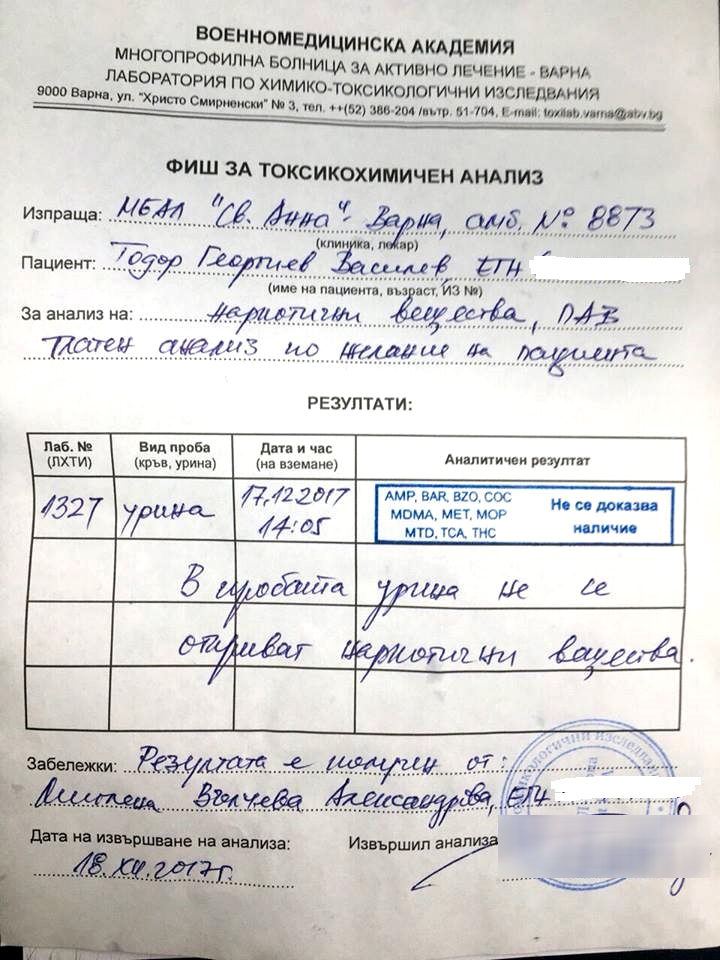 ВОЕННОМЕДИЦИНСКА АКАДЕМИЯ
МНОГОПРОФИЛНА БОЛНИЦА ЗА АКТИВНО ЛЕЧЕНИЕ - ВАРНА
ЛАБОРАТОРИЯ ПО ХИМИКО-ТОКСИКОЛОГИЧНИ ИЗСЛЕДВАНИЯ
9000 Варна, ул. "Христо Смирненски" № 3, тел. ++(52) 386-204 /вътр. 51-704, E-mail: toxilab.varna@abv.bg
ФИШ ЗА ТОКСИКОХИМИЧЕН АНАЛИЗ
Изпраща: МБАЛ "Св. Анна" - Варна, амб. № 8873
(клиника, лекар)
Пациент: Тодор Георгиев Василев, ЕГН
(име на пациента, възраст, ИЗ №)
За анализ на: наркотични вещества, ПАВ
Платен анализ по желание на пациента
РЕЗУЛТАТИ:
Лаб. № (ЛХТИ) Вид проба (кръв, урина) Дата и час (на вземане) Аналитичен резултат
1327 урина 17.12.2017 14:05
AMP, BAR, BZO, COC
MDMA, MET, MOP
MTD, TCA, THC
Не се доказва
наличие
В пробата урина не се
откриват наркотични вещества.
Забележки: Резултата е получен от:
Вълчева Александрова, ЕГН
Дата на извършване на анализа: Извършил анализа
18.XII.2017г.